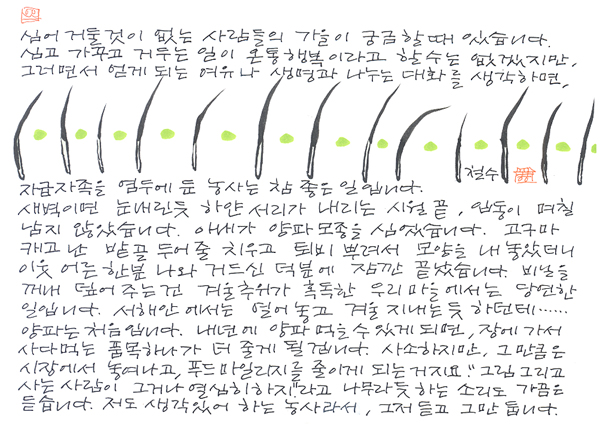 심어 거둘것이 없는 사람들의 가을이 궁금할 때 있습니다.
심고 가꾸고 거두는 일이 온통 행복이라고 할 수는 없겠지만,
그러면서 얻게 되는 여유나 생명과 나누는 대화를 생각하면,
철수
자급자족을 염두에 둔 농사는 참 좋은 일입니다.
새벽이면 눈내린듯 하얀 서리가 내리는 시월 끝, 입동이 며칠
남지 않았습니다. 아내가 양파모종을 심었습니다. 고구마
캐고난 밭끝 두어줄 치우고 퇴비 뿌려서 모양을 내놓았더니
이웃 어른 한분 나와 거드신 덕분에 잠깐 끝났습니다. 비닐을
꺼내 덮어주는건 겨울추위가 혹독한 우리마을에서는 당연한
일입니다. 서해안에서는 열어놓고 겨울 지내는듯 하던데……
양파는 처음입니다. 내년에 양파 먹을수 있게 되면, 장에 가서
사다먹는 품목하나가 더 줄게 될겁니다. 사소하지만, 그만큼은
시장에서 놓여나고, 푸드마일리지를 줄이게 되는거지요. "그럼 그리고
사는 사람이 그거나 열심히하지!"라고 나무라듯 하는 소리도 가끔은
듣습니다. 저도 생각있어 하는 농사라서, 그저 듣고 그만 둡니다.